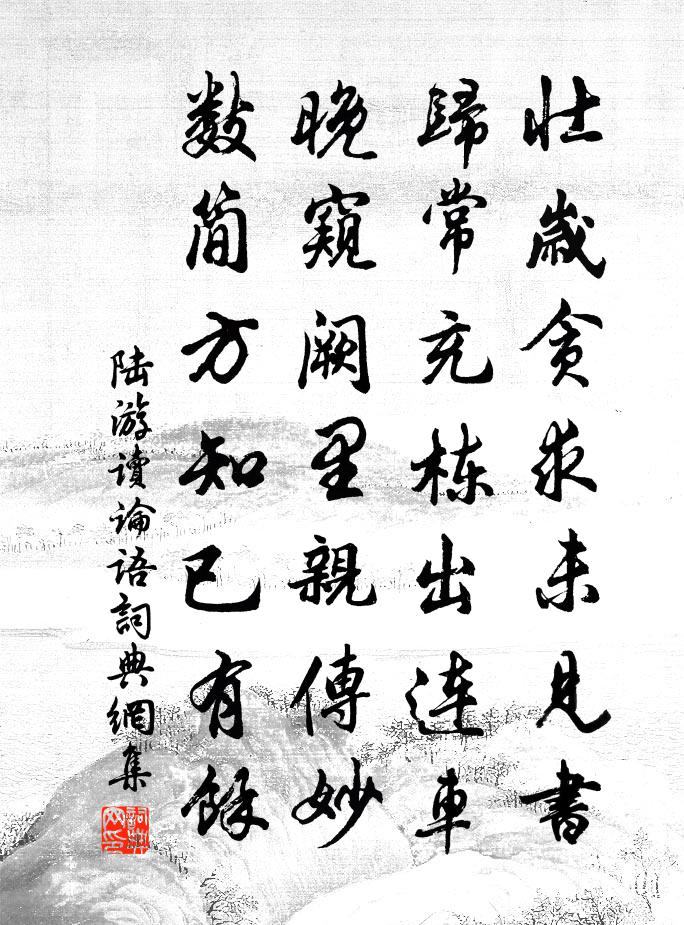 壯歲貪求未見書
歸常充棟出連車
晚窺闕里親傳妙
數简方知已有餘
陸游讀論語詞典網集
詞典
网印